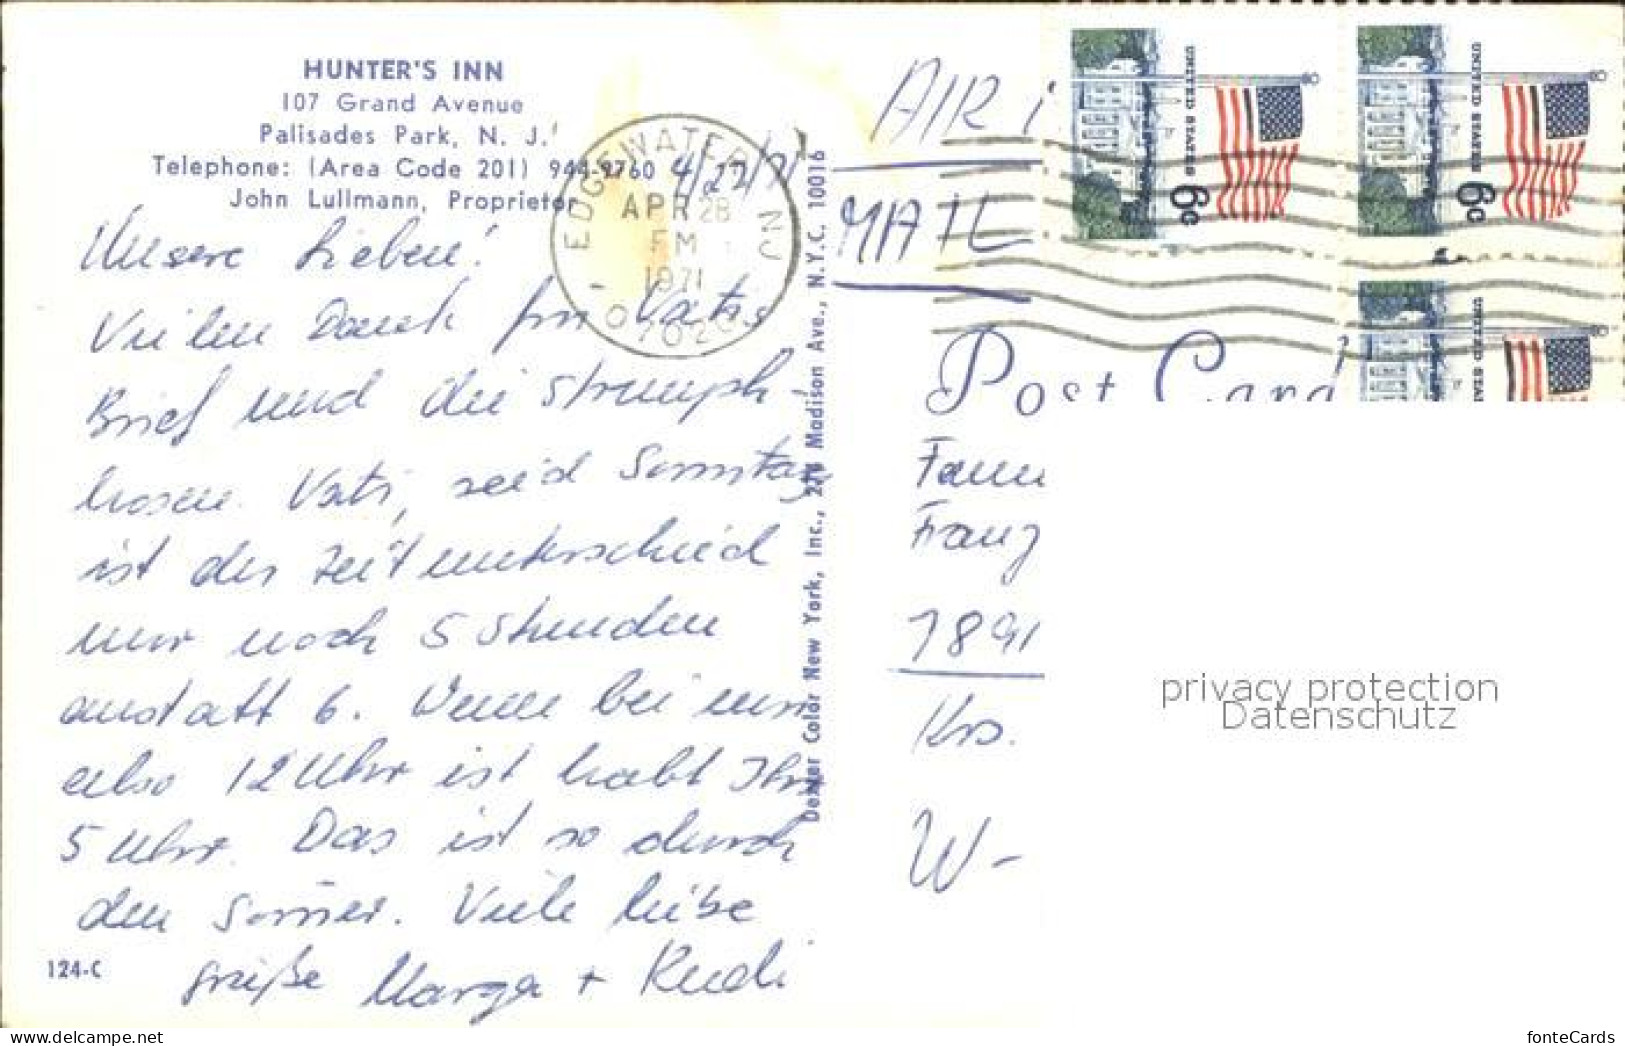 HUNTER'S INN
107 Grand Avenue
Palisades Park, N. J.
Telephone: (Area Code 201) 944-9760
John Lullmann, Proprietor
4/27/71
Unsere Lieben!
Vielen Dank für Vatis
Brief und die Strumpf-
hosen. Vati, seid Sonntag
ist der Zeitunterschied
nur noch 5 Stunden
anstatt 6. Wenn bei uns
also 12 Uhr ist habt Ihr
5 Uhr. Das ist so durch
den Somer. Viele liebe
grüße Marga + Rudi
124-C
EDGEWATER NJ
APR 28
PM
1971
07020
Dexter Color New York, Inc., 270 Madison Ave., N.Y.C. 10016
AIR
MAIL
UNITED STATES
6c
UNITED STATES
6c
UNITED STA
Post Card
Fam
Franz
7891
Krs.
W-
privacy protection
Datenschutz
www.delcampe.net
fonteCards